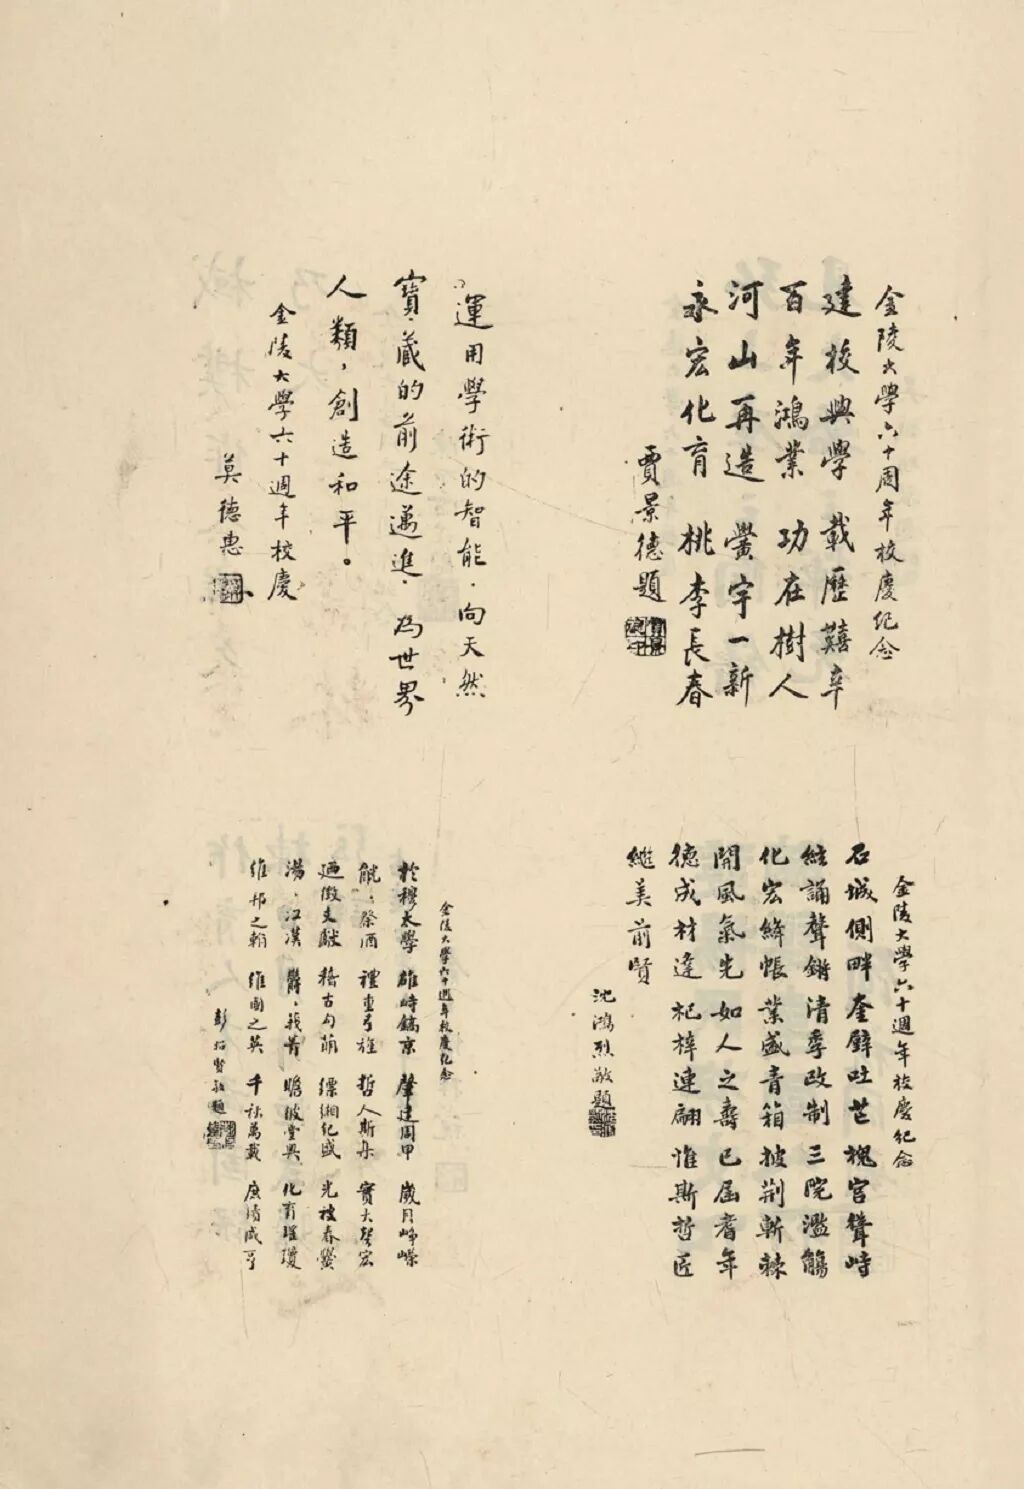 金陵大學六十周年校慶紀念
建校興學 載歷囏辛
百年鴻業 功在樹人
河山再造 黌宇一新
永宏化育 桃李長春
賈景德題
運用學術的智能.向天然
寶.藏的前途邁進.為世界
人類,創造和平。
金陵大學六十週年校慶
莫德惠
金陵大學六十週年校慶紀念
石城側畔 奎壁吐芒 槐宮聳峙
絃誦聲鏘 清季改制 三院濫觴
化宏絳帳 業盛青箱 披荆斬棘
開風氣先 如人之壽 已屆耆年
德成材達 杞梓連翩 惟斯哲匠
繼美前賢
沈鴻烈敬題
金陵大學六十週年校慶紀念
於穆太學 雄峙鎬京 聲逹周甲 歲月崢嶸
祭酒 禮重弓旌 哲人斯舟 實大聲宏
迺徵文獻 稽古 縹緗紀盛 光被春黌
湯湯江漢 菁 瞻彼堂奧 化育瓊
維邦之翰 維國之英 千秋萬載 庶績咸亨
彭 題